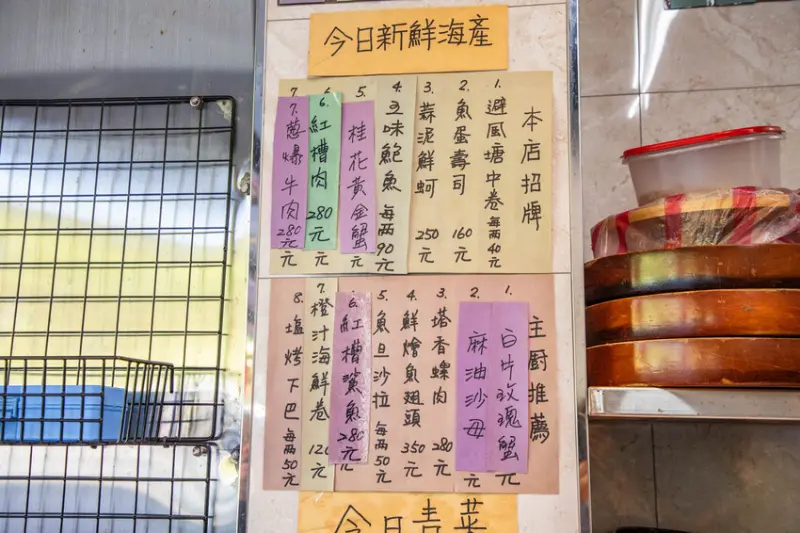 今日新鮮海產
本店招牌
1. 避風塘中卷 每兩40元
2. 魚蛋壽司 160元
3. 蒜泥鮮蚵 250元
4. 五味鮑魚 每兩90元
5. 桂花黃金蟹 元
6. 紅槽肉 280元 元
7. 7. 蔥爆牛肉 280元 元
主厨推薦
1. 白片玫瑰蟹 元
2. 麻油沙母 元
3. 塔香螺肉 280元
4. 鮮燴魚翅頭 350元
5. 魚旦沙拉 每兩50元
6. 紅槽鯊魚 280元
7. 橙汁海鮮卷 120元
8. 塩烤下巴 每兩50元
今日青菜